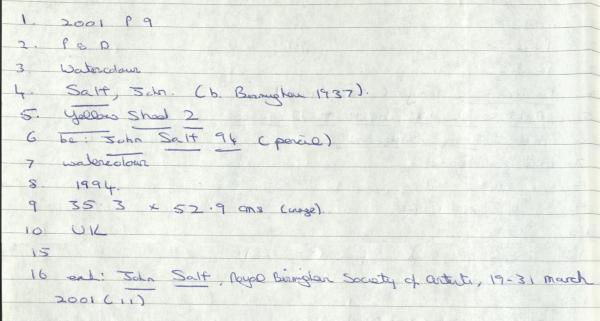 1. 2001 P 9
2. P & D
3 Watercolour
4. Salt, John. (b. Birmingham 1937).
5. Yellow Shed 2
6 be: John Salt 94 (pencil)
7 watercolour
8. 1994.
9 35.3 x 52.9 cms (image).
10 UK
15
16 exh: John Salt, Royal Birmingham Society of Artists, 19-31 March
2001 (11)